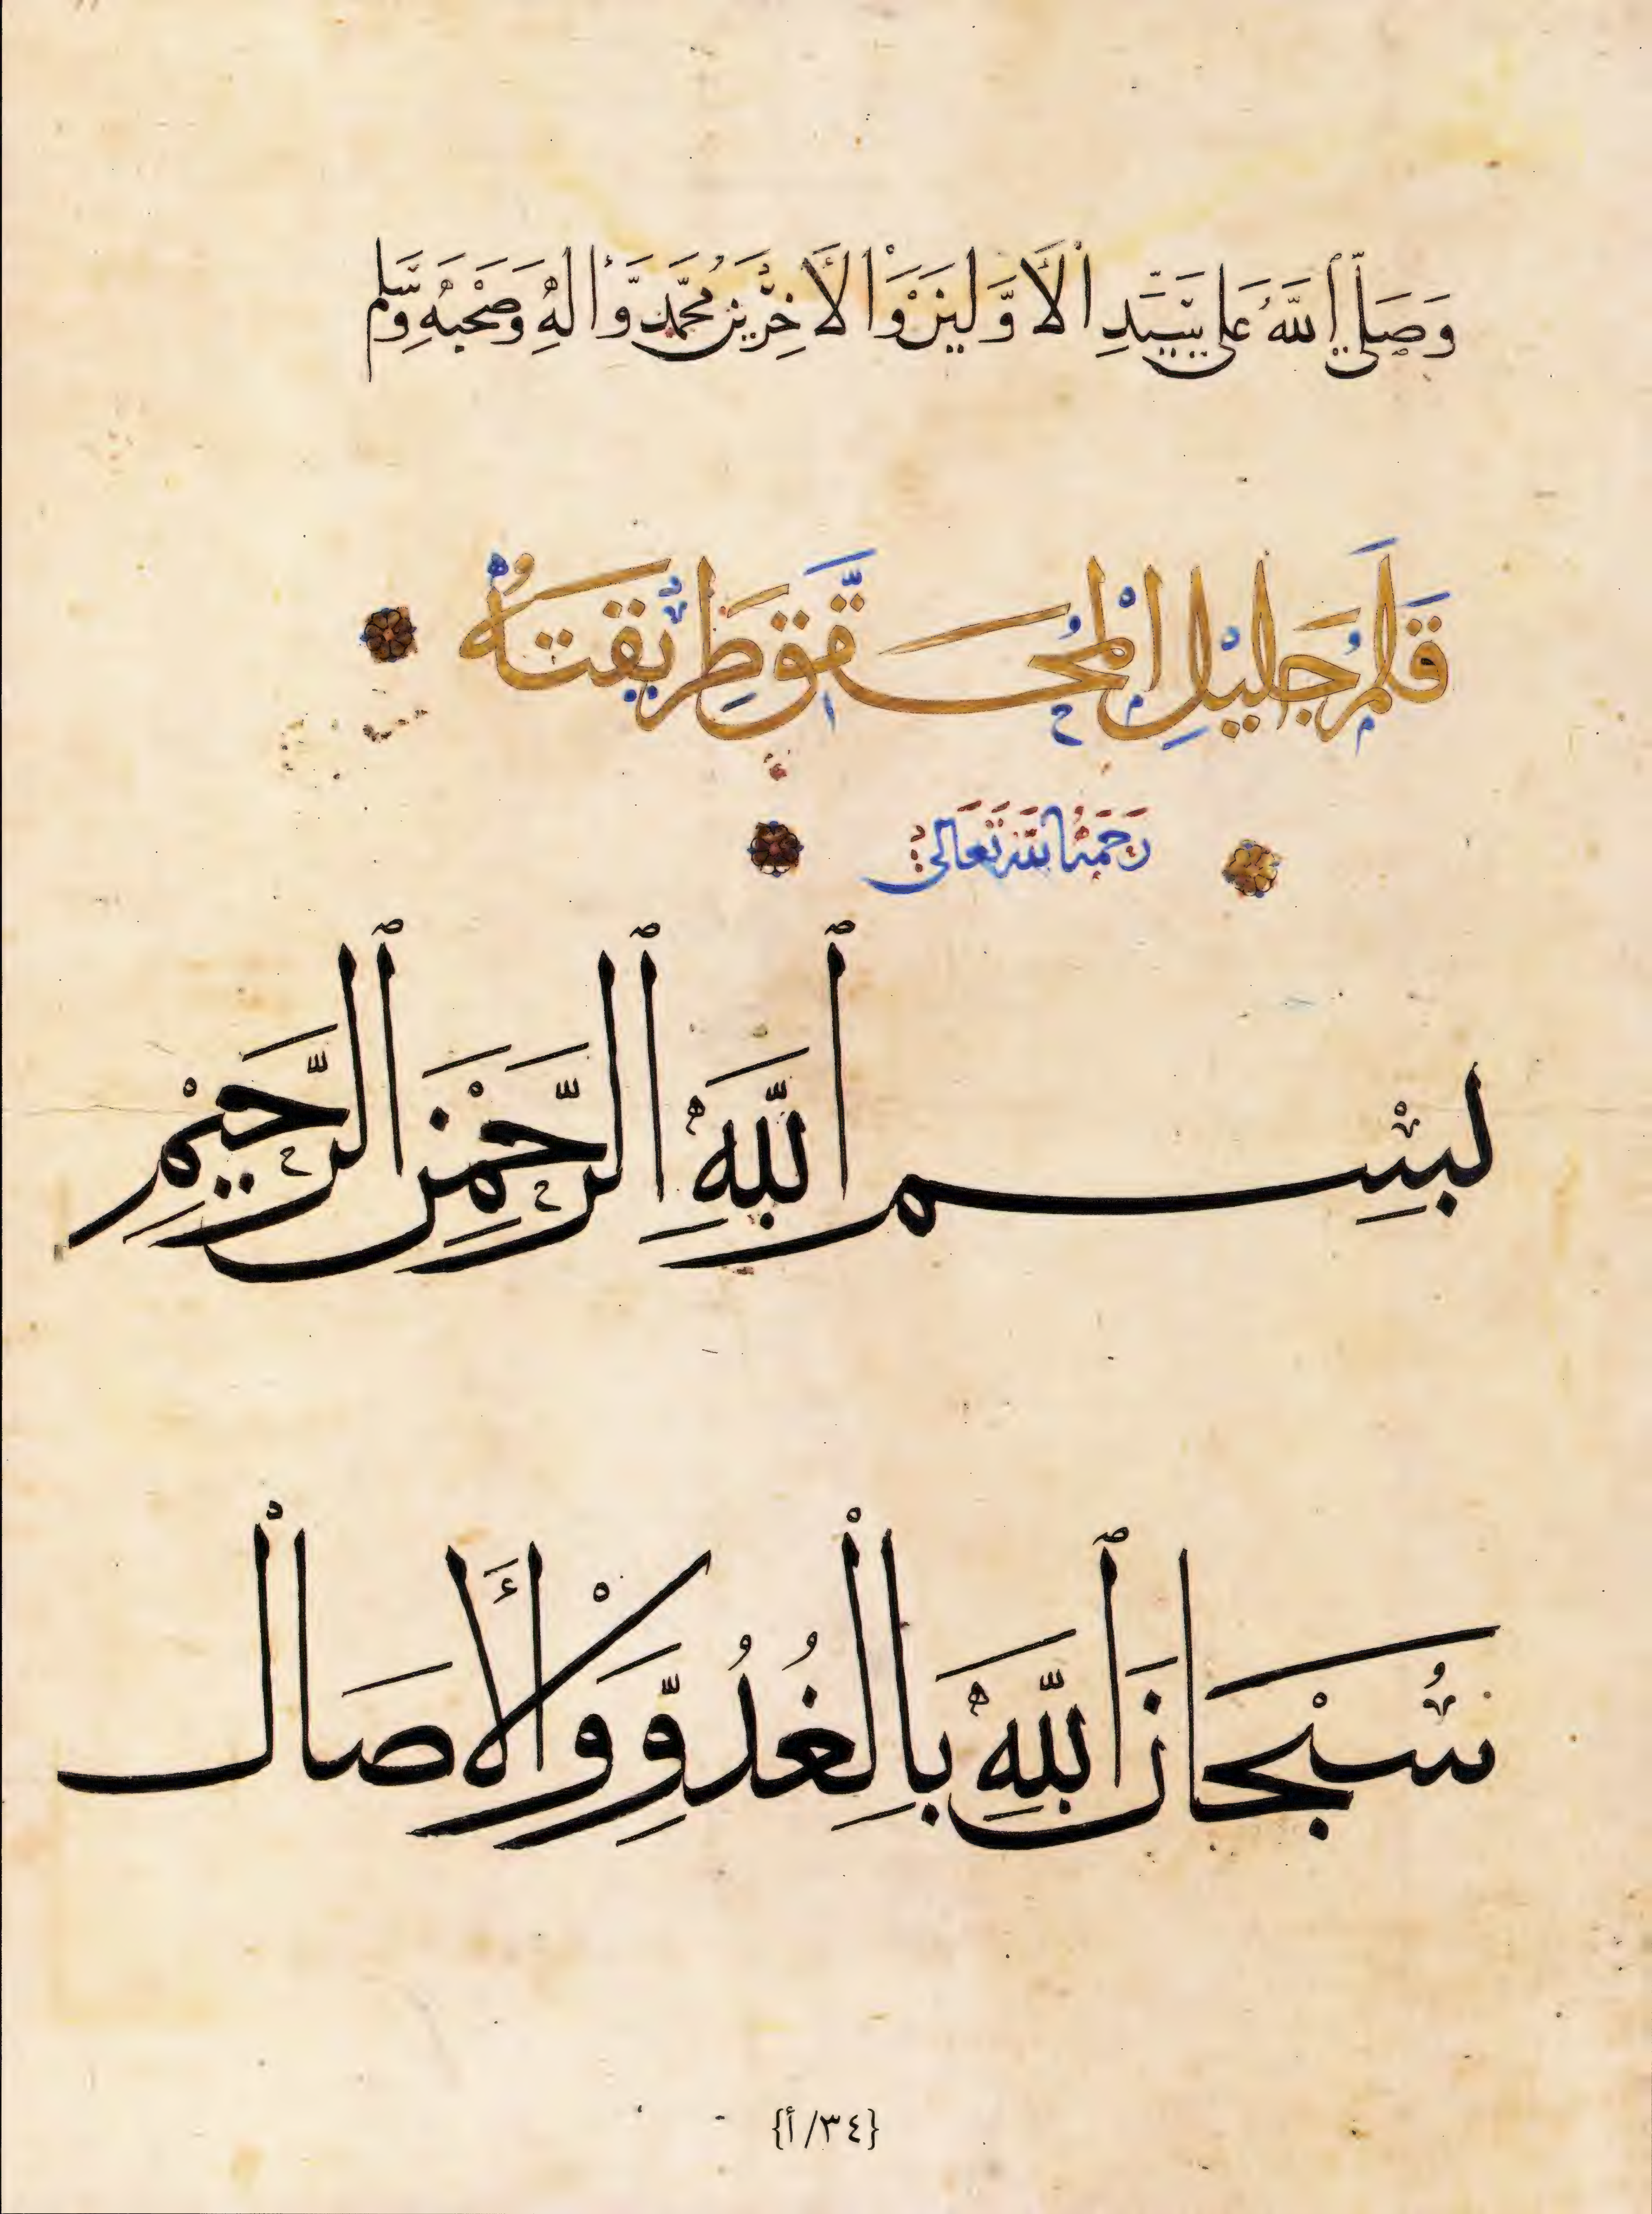 وَصَلَّى اللَّهُ عَلَى سَيِّدِ الْأَوَّلِينَ وَالْأَخِرِينَ مُحَمَّدٍ وَّأَلِهِ وَصَحْبِهِ وَسَلَّم
قَلَمُ جَلِيْلِ الْمُحَقَّقِ طَرِيْقَتُهُ
رَحِمَهُ اللهُ تَعَالَى
بِسْمِ ٱللَّهِ ٱلرَّحْمَنِ ٱلرَّحِيْمِ
سُبْحَانَ ٱللَّهِ بِالْغُدُوِّ وَالْأَصَال
{٣٤/أ}